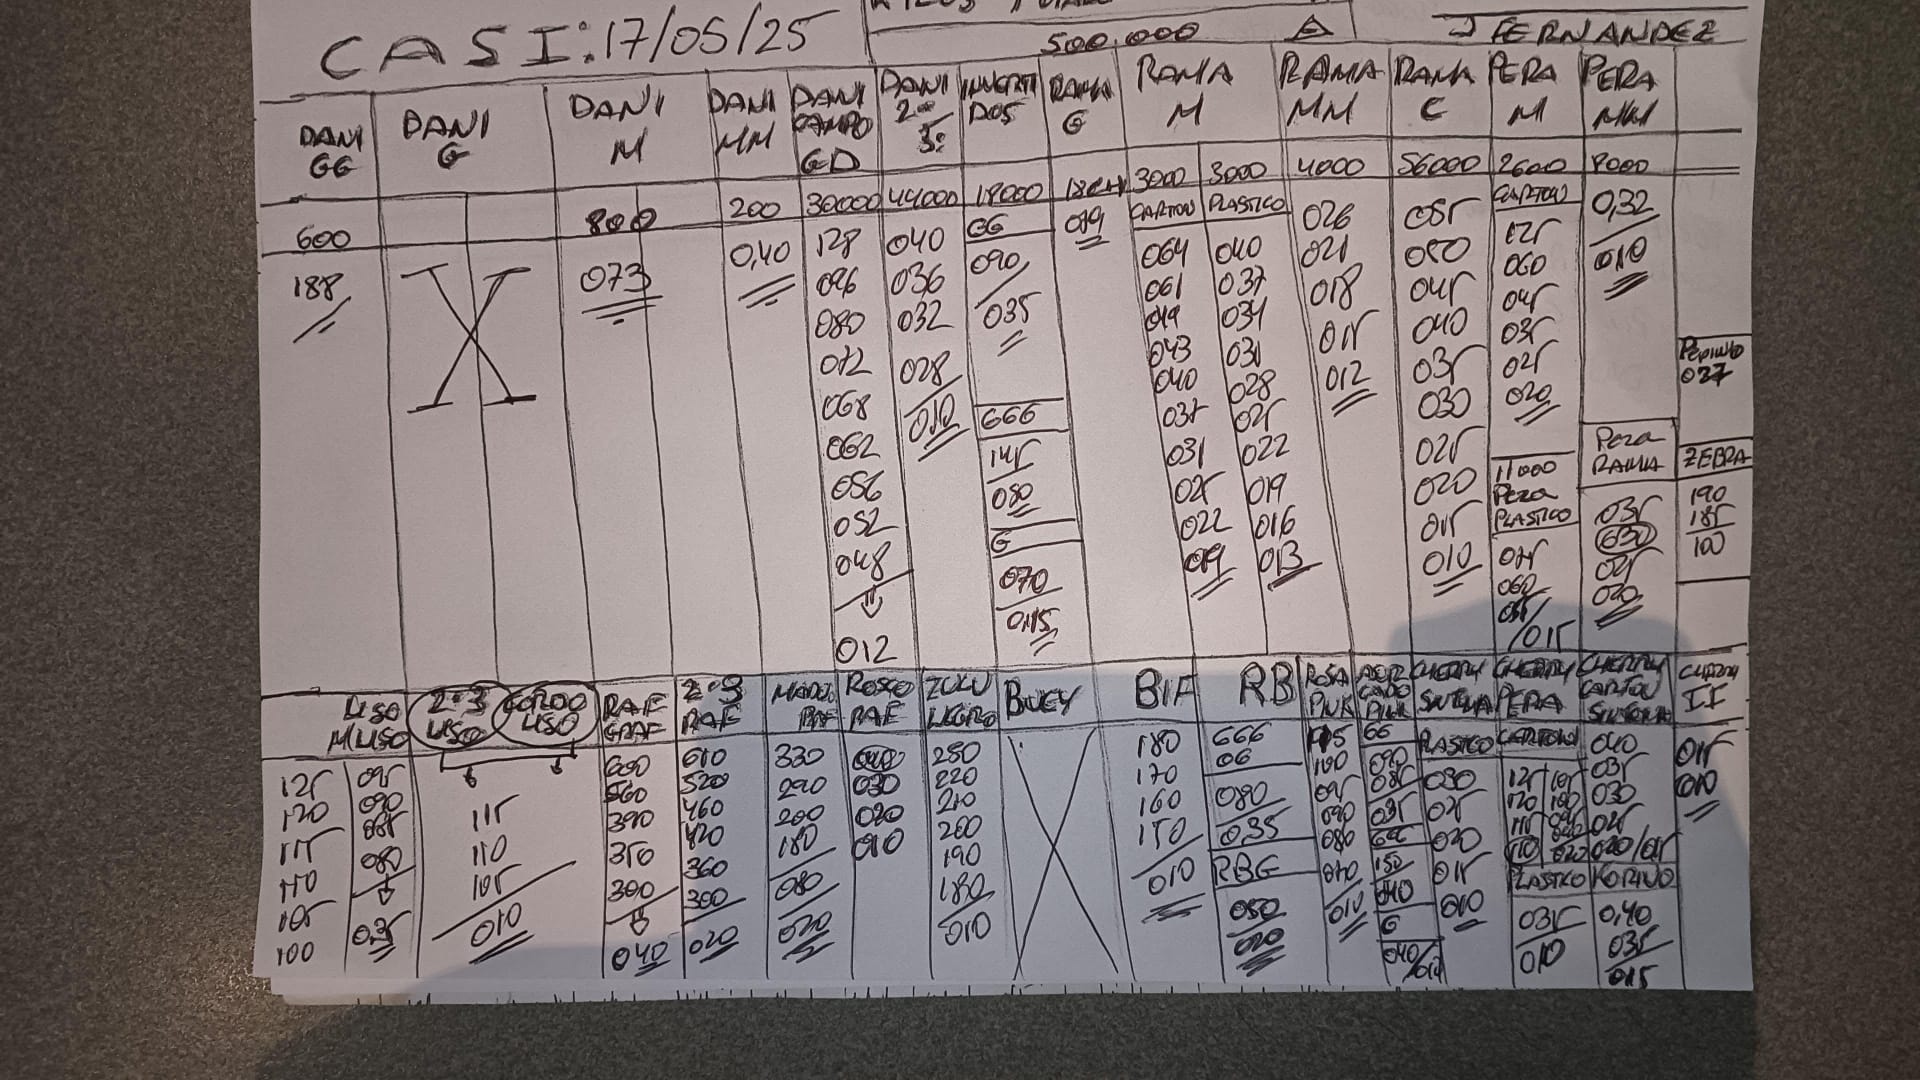 CASI: 17/05/25
500.000
J FERNANDEZ
DANI GG
DANI G
DANI M
DANI MM
DANI CAMPO GD
DANI 2ª S:
INVERTI DOS
RAMA G
RAMA M
RAMA MM
RAMA C
PERA M
PERA MM
600
800
200
30000
44000
18000
3000
3000
4000
56000
2600
8000
188
073
0,40
128
096
080
072
068
062
056
052
048
012
040
036
032
028
010
GG
090
035
GGG
145
080
G
070
0,15
019
CARTON
064
061
049
043
040
037
031
025
022
019
PLASTICO
040
037
034
031
028
025
022
019
016
013
026
021
018
015
012
085
050
045
040
035
030
025
020
015
010
CARTON
060
045
035
025
020
11000
PERA
PLASTICO
015
0,32
010
PERA
RAMA
035
030
025
020
PEPINILLO
027
ZEBRA
190
185
100
LISO
M LISO
125
120
115
110
105
100
095
090
085
080
035
2ª3
LISO
GORDO
LISO
115
110
105
010
RAF
GRAF
600
560
390
350
300
040
2ª3
RAF
610
520
460
420
360
300
020
RAF
330
290
200
180
080
020
ROSCO
RAF
040
030
020
010
ZULU
NEGRO
250
220
210
200
190
180
010
BUEY
BIF
180
170
160
150
010
RB
666
06
080
0,35
RBG
050
020
ROSA
PINK
100
095
090
080
070
010
PINK
GG
090
085
035
150
040
G
040/
CHERRY
SINTONIA
PLASTICO
030
025
020
015
010
CHERRY
PERA
CARTON
125
120
115
110
PLASTICO
035
010
CHERRY
CARTON
SINTONIA
040
035
030
025
020/015
KORINO
0,40
035
015
CHERRY
II
015
010